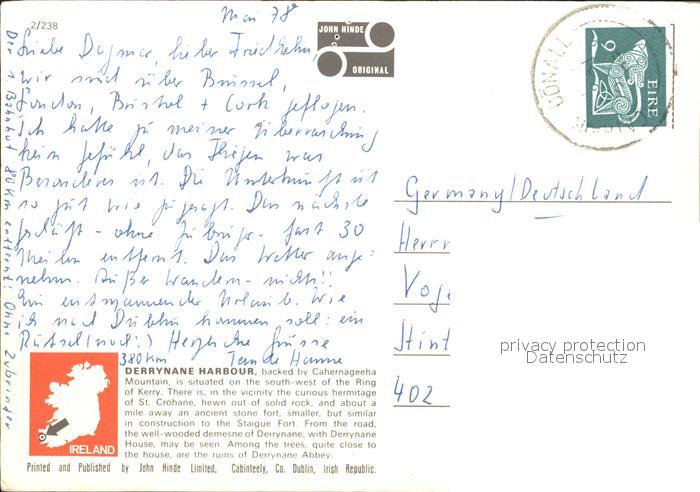 Mai 78
2/238
JOHN HINDE
ORIGINAL
Liebe Dagmar, lieber Friedhelm,
wir sind über Brüssel,
London, Bristol + Cork geflogen.
Ich hatte zu meiner Überraschung
kein Gefühl, das Fliegen was
Besonderes ist. Die Unterkunft ist
so gut wie zugesagt. Das nächste
Geschäft - ohne - fast 30
Meilen entfernt. Das Wetter ange-
nehm. Außer wandern - nichts!!
Ein entspannender Urlaub. Wie
ich nach Dublin kommen soll: ein
Rätsel (noch!) Herzliche Grüsse
380km
Der 1 Bahnhof 80 km entfernt! Ohne Zubringer
DERRYNANE HARBOUR, backed by Cahernageeha
Mountain, is situated on the south-west of the Ring
of Kerry. There is, in the vicinity the curious hermitage
of St. Crohane, hewn out of solid rock, and about a
mile away an ancient stone fort, smaller, but similar
in construction to the Staigue Fort. From the road,
the well-wooded demesne of Derrynane, with Derrynane
House, may be seen. Among the trees, quite close to
the house, are the ruins of Derrynane Abbey.
IRELAND
Printed and Published by John Hinde Limited, Cabinteely, Co. Dublin, Irish Republic.
EIRE
Germany/Deutschland
Herrn
Stint
402
privacy protection
Datenschutz